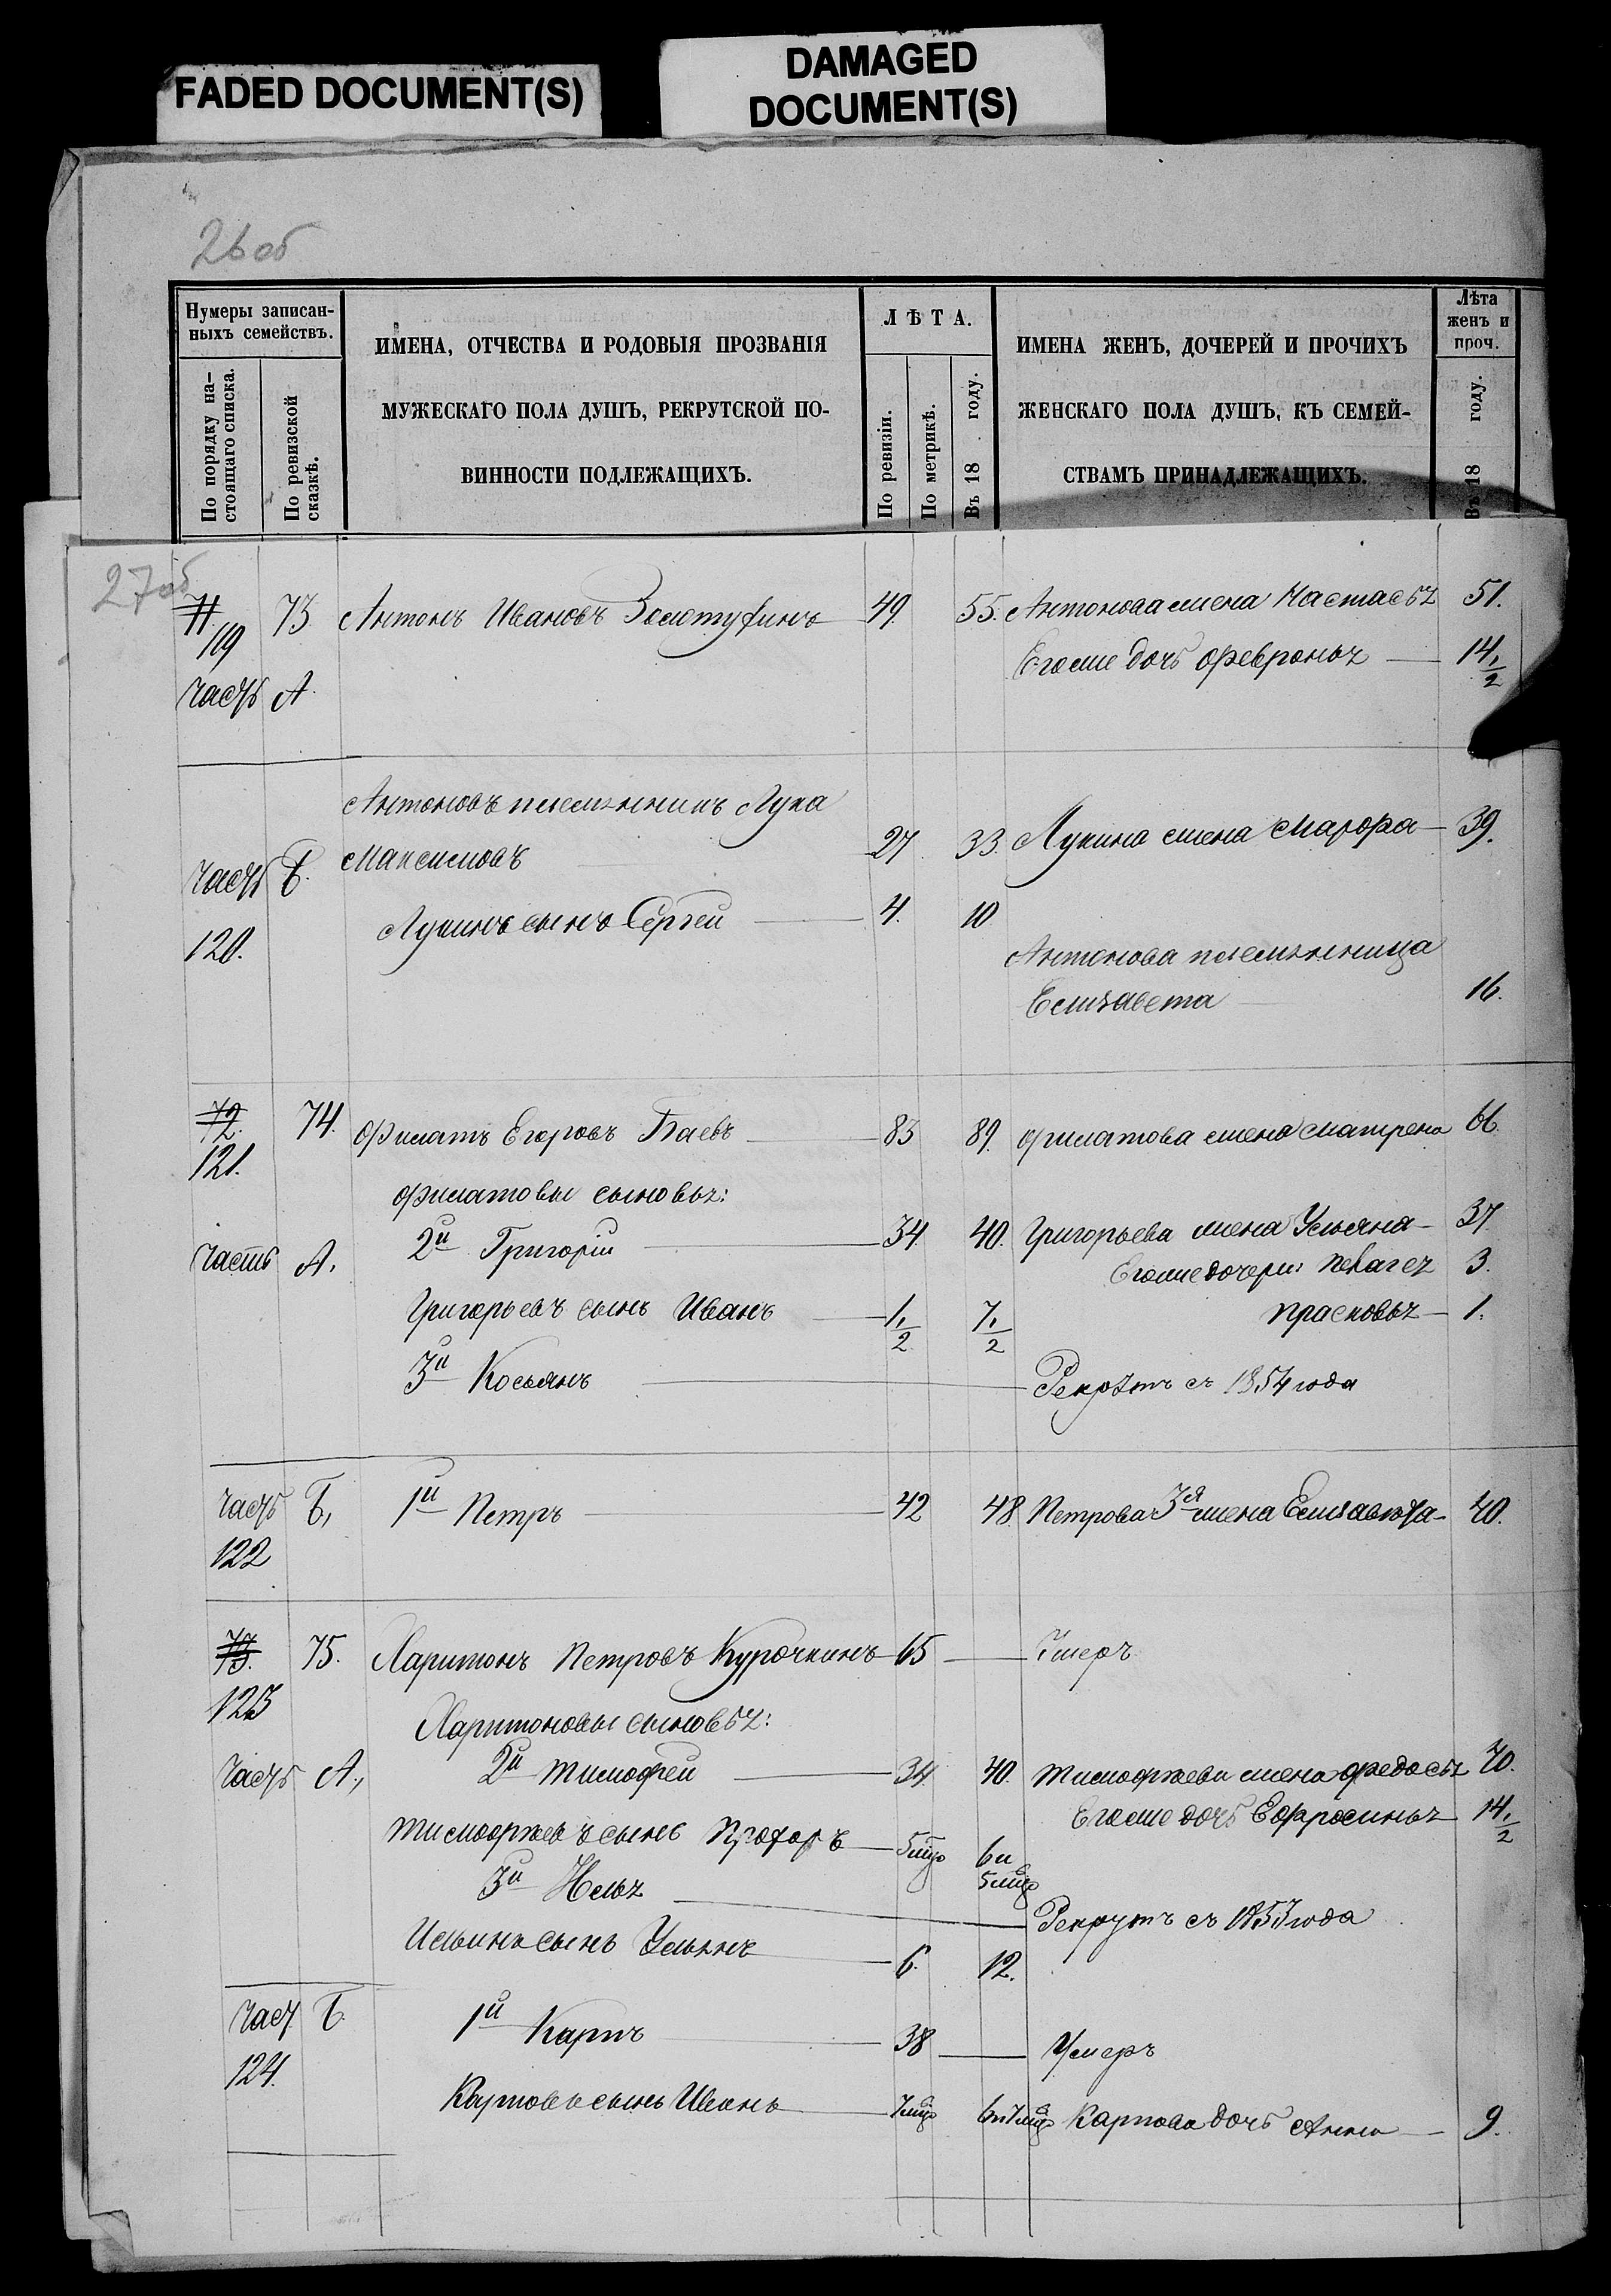 FADED DOCUMENT(S)
DAMAGED
DOCUMENT(S)
26 об
Нумеры записан-
ныхъ семействъ.
По порядку на-
стоящаго списка.
По ревизской
сказкѣ.
ИМЕНА, ОТЧЕСТВА И РОДОВЫЯ ПРОЗВАНІЯ
МУЖЕСКАГО ПОЛА ДУШЪ, РЕКРУТСКОЙ ПО-
ВИННОСТИ ПОДЛЕЖАЩИХЪ.
ЛѢТА.
По ревизіи.
По метрикѣ.
Въ 18 году.
ИМЕНА ЖЕНЪ, ДОЧЕРЕЙ И ПРОЧИХЪ
ЖЕНСКАГО ПОЛА ДУШЪ, КЪ СЕМЕЙ-
СТВАМЪ ПРИНАДЛЕЖАЩИХЪ.
Лѣта
женъ и
проч.
Въ 18 году.
27 об
71. 73. Антонъ Ивановъ Золотухинъ 49. 55. Антонова жена Настасья 51.
119 Егоже дочь Февронья 14 1/2
Часть А.
Антоновъ племянникъ Лука
Максимовъ 27 33. Лукина жена Марфа 39.
Часть Б.
Лукинъ сынъ Сергей 4. 10
120.
Антонова племянница
Елизавета 16.
72. 74. Филатъ Егоровъ Баевъ 83 89. Филатова жена Матрена 66.
121.
Филатовы сыновья:
Часть А. 2й Григорій 34. 40. Григорьева жена Ульяна 37.
Егоже дочери: Пелагея 3.
Григорьевъ сынъ Иванъ 1 1/2 7 1/2 Прасковья 1.
3й Косьянъ Рекрутъ съ 1854 года
Часть Б, 1й Петръ 42 48. Петрова 3я жена Елизавета 40.
122
73. 75. Харитонъ Петровъ Курочкинъ 65 Умеръ
123
Харитоновы сыновья:
Часть А., 2й Тимофей 34. 40. Тимофѣева жена Федосья 40.
Егоже дочь Ефросинья 14 1/2
Тимофѣевъ сынъ Прохоръ 5 мцо 6 и
5 мцо
3й Илья Рекрутъ съ 1853 года
Ильинъ сынъ Ульянъ 6. 12.
Част Б. 1й Карпъ 38 Умеръ
124.
Карповъ сынъ Иванъ 7 мцо 6 и 7 мцо Карпова дочь Анна 9.